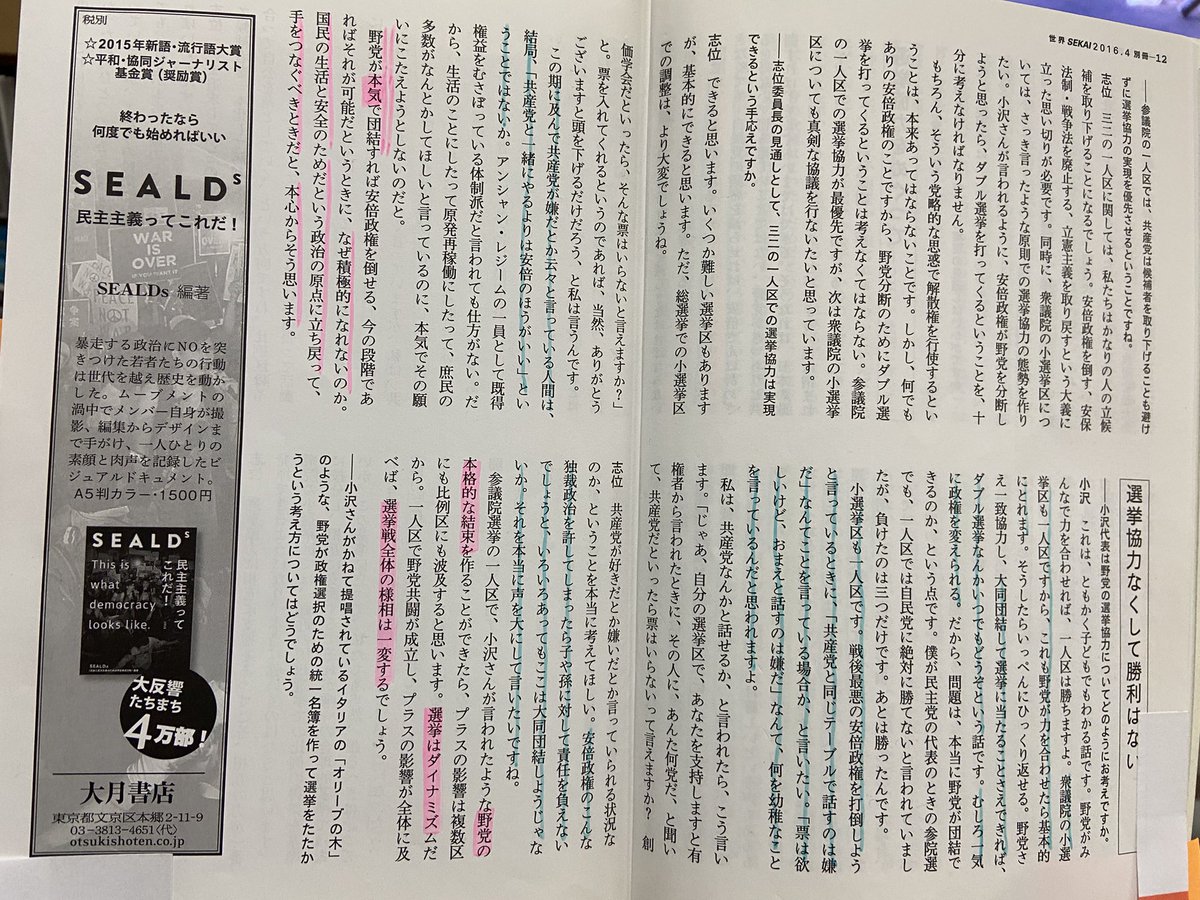 世界 SEKAI 2016.4 別冊―12
――参議院の一人区では、共産党は候補者を取り下げることも避け
ずに選挙協力の実現を優先させるということですね。
志位　三二の一人区に関しては、私たちはかなりの人の立候
補を取り下げることになるでしょう。安倍政権を倒す、安保
法制・戦争法を廃止する、立憲主義を取り戻すという大義に
立った思い切りが必要です。同時に、衆議院の小選挙区につ
いては、さっき言ったような原則での選挙協力の態勢を作り
たい。小沢さんが言われるように、安倍政権が野党を分断し
ようと思ったら、ダブル選挙を打ってくるということを、十
分に考えなければなりません。
もちろん、そういう党略的な思惑で解散権を行使するとい
うことは、本来あってはならないことです。しかし、何でも
ありの安倍政権のことですから、野党分断のためにダブル選
挙を打ってくるということは考えなくてはならない。参議院
の一人区での選挙協力が最優先ですが、次は衆議院の小選挙
区についても真剣な協議を行ないたいと思っています。
――志位委員長の見通しとして、三二の一人区での選挙協力は実現
できるという手応えですか。
志位　できると思います。いくつか難しい選挙区もあります
が、基本的にできると思います。ただ、総選挙での小選挙区
での調整は、より大変でしょうね。
選挙協力なくして勝利はない
――小沢代表は野党の選挙協力についてどのようにお考えですか。
小沢　これは、ともかく子どもでもわかる話です。野党がみ
んなで力を合わせれば、一人区は勝ちますよ。衆議院の小選
挙区も一人区ですから、これも野党が力を合わせたら基本的
にとれます。そうしたらいっぺんにひっくり返せる。野党さ
え一致協力し、大同団結して選挙に当たることさえできれば、
ダブル選挙なんかいつでもどうぞという話です。むしろ一気
に政権を変えられる。だから、問題は、本当に野党が団結で
きるのか、という点です。僕が民主党の代表のときの参院選
でも、一人区では自民党に絶対に勝てないと言われていまし
たが、負けたのは三つだけです。あとは勝ったんです。
小選挙区も一人区です。戦後最悪の安倍政権を打倒しよう
と言っているときに、「共産党と同じテーブルで話すのは嫌
だ」なんてことを言っている場合か、と言いたい。「票は欲
しいけど、おまえと話すのは嫌だ」なんて、何を幼稚なこと
を言っているんだと思われますよ。
私は、共産党なんかと話せるか、と言われたら、こう言い
ます。「じゃあ、自分の選挙区で、あなたを支持しますと有
権者から言われたときに、その人に、あんた何党だ、と聞い
て、共産党だといったら票はいらないって言えますか？　創
価学会だといったら、そんな票はいらないと言えますか？」
と。票を入れてくれるというのであれば、当然、ありがとう
ございますと頭を下げるだけだろう、と私は言うんです。
この期に及んで共産党が嫌だとか云々と言っている人間は、
結局、「共産党と一緒にやるよりは安倍のほうがいい」とい
うことではないか。アンシャン・レジームの一員として既得
権益をむさぼっている体制派だと言われても仕方がない。だ
から、生活のことにしたって原発再稼働にしたって、庶民の
多数がなんとかしてほしいと言っているのに、本気でその願
いにこたえようとしないのだと。
野党が本気で団結すれば安倍政権を倒せる、今の段階であ
ればそれが可能だというときに、なぜ積極的になれないのか。
国民の生活と安全のためだという政治の原点に立ち戻って、
手をつなぐべきときだと、本心からそう思います。
志位　共産党が好きだとか嫌いだとか言っていられる状況な
のか、ということを本当に考えてほしい。安倍政権のこんな
独裁政治を許してしまったら子や孫に対して責任を負えない
でしょうと、いろいろあってもここは大同団結しようじゃな
いか。それを本当に声を大にして言いたいですね。
参議院選挙の一人区で、小沢さんが言われたような野党の
本格的な結束を作ることができたら、プラスの影響は複数区
にも比例区にも波及すると思います。選挙はダイナミズムだ
から。一人区で野党共闘が成立し、プラスの影響が全体に及
べば、選挙戦全体の様相は一変するでしょう。
――小沢さんがかねて提唱されているイタリアの「オリーブの木」
のような、野党が政権選択のための統一名簿を作って選挙をたたか
うという考え方についてはどうでしょう。
税別
☆2015年新語・流行語大賞
☆平和・協同ジャーナリスト
基金賞（奨励賞）
終わったなら
何度でも始めればいい
SEALDs
民主主義ってこれだ！
WAR
IS
OVER
SEALDs 編著
暴走する政治にNOを突
きつけた若者たちの行動
は世代を越え歴史を動か
した。ムーブメントの
渦中でメンバー自身が撮
影、編集からデザインま
で手がけ、一人ひとりの
素顔と肉声を記録したビ
ジュアルドキュメント。
A5判カラー・1500円
SEALDs
民主主義って
これだ！
This is
what
democracy
looks like.
SEALDs
大反響
たちまち
4万部！
大月書店
東京都文京区本郷2-11-9
03-3813-4651(代)
otsukishoten.co.jp